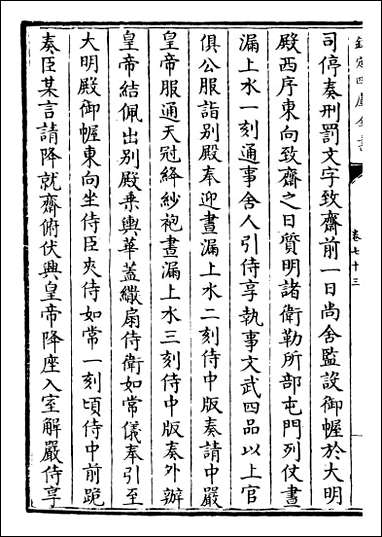 欽定四庫全書
卷七十三
司停奏刑罰文字致齋前一日尚舍監設御幄於大明
殿西序東向致齋之日質明諸衛勒所部屯門列仗晝
漏上水一刻通事舍人引侍享執事文武四品以上官
俱公服詣别殿奉迎晝漏上水二刻侍中版奏請中嚴
皇帝服通天冠絳紗袍晝漏上水三刻侍中版奏外辦
皇帝結佩出别殿乘輿華蓋繖扇侍衛如常儀奉引至
大明殿御幄東向坐侍臣夾侍如常一刻頃侍中前跪
奏臣某言請降就齋俯伏興皇帝降座入室解嚴侍享